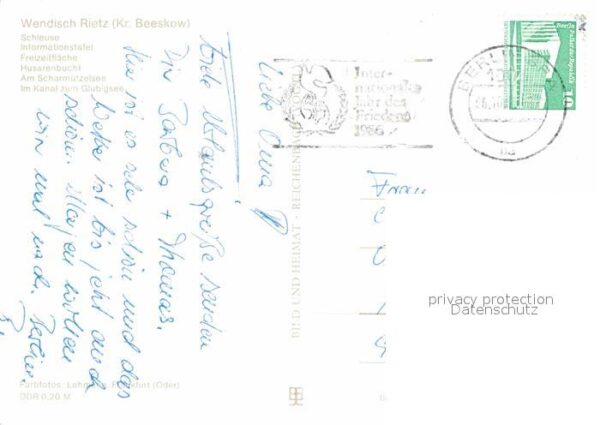 Wendisch Rietz (Kr. Beeskow)
Schleuse
Informationstafel
Freizeitfläche
Husarenbucht
Am Scharmützelsee
Im Kanal zum Glubigsee
Liebe Oma!
Urlaubsgrüße senden
Dir Barbara + Thomas.
Hier ist es sehr schön und das
Wetter ist bis jetzt auch
schön. Morgen wollen
wir mal nach Berlin.
Farbfotos: Frankfurt (Oder)
DDR 0,20 M
BILD UND HEIMAT · REICHENBACH
Inter-
nationales
Jahr des
Friedens
1986
BERLIN
10
DDR
privacy protection
Datenschutz